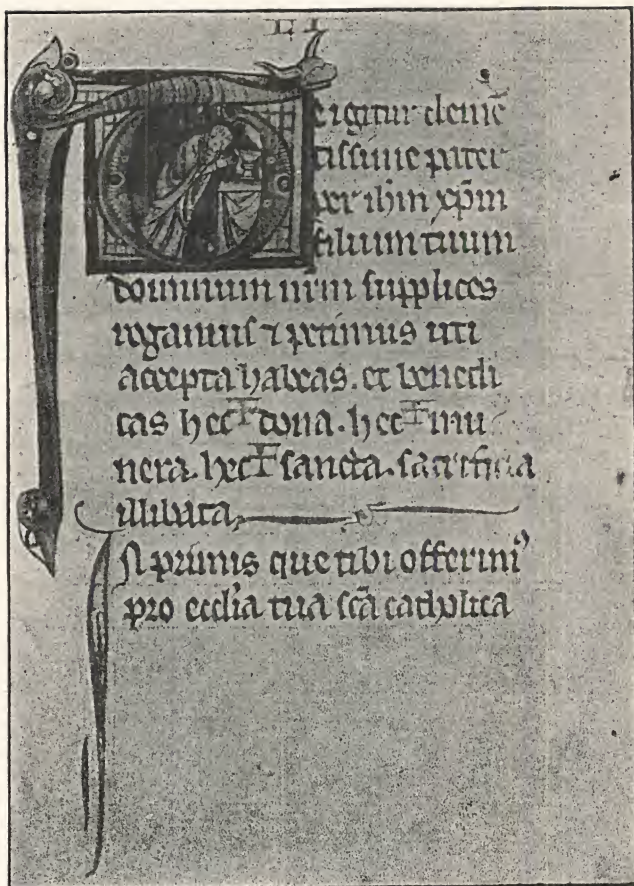 LI
Te igitur clemē
tissime pater
per ihm xpm
filium tuum
dominum nrm supplices
rogamus ⁊ petimus uti
accepta habeas. et benedi
cas hec ✝ dona. hec ✝ mu
nera. hec ✝ sancta. sacrificia
illibata,
In primis que tibi offerimꝰ
pro ecclia tua scā catholica